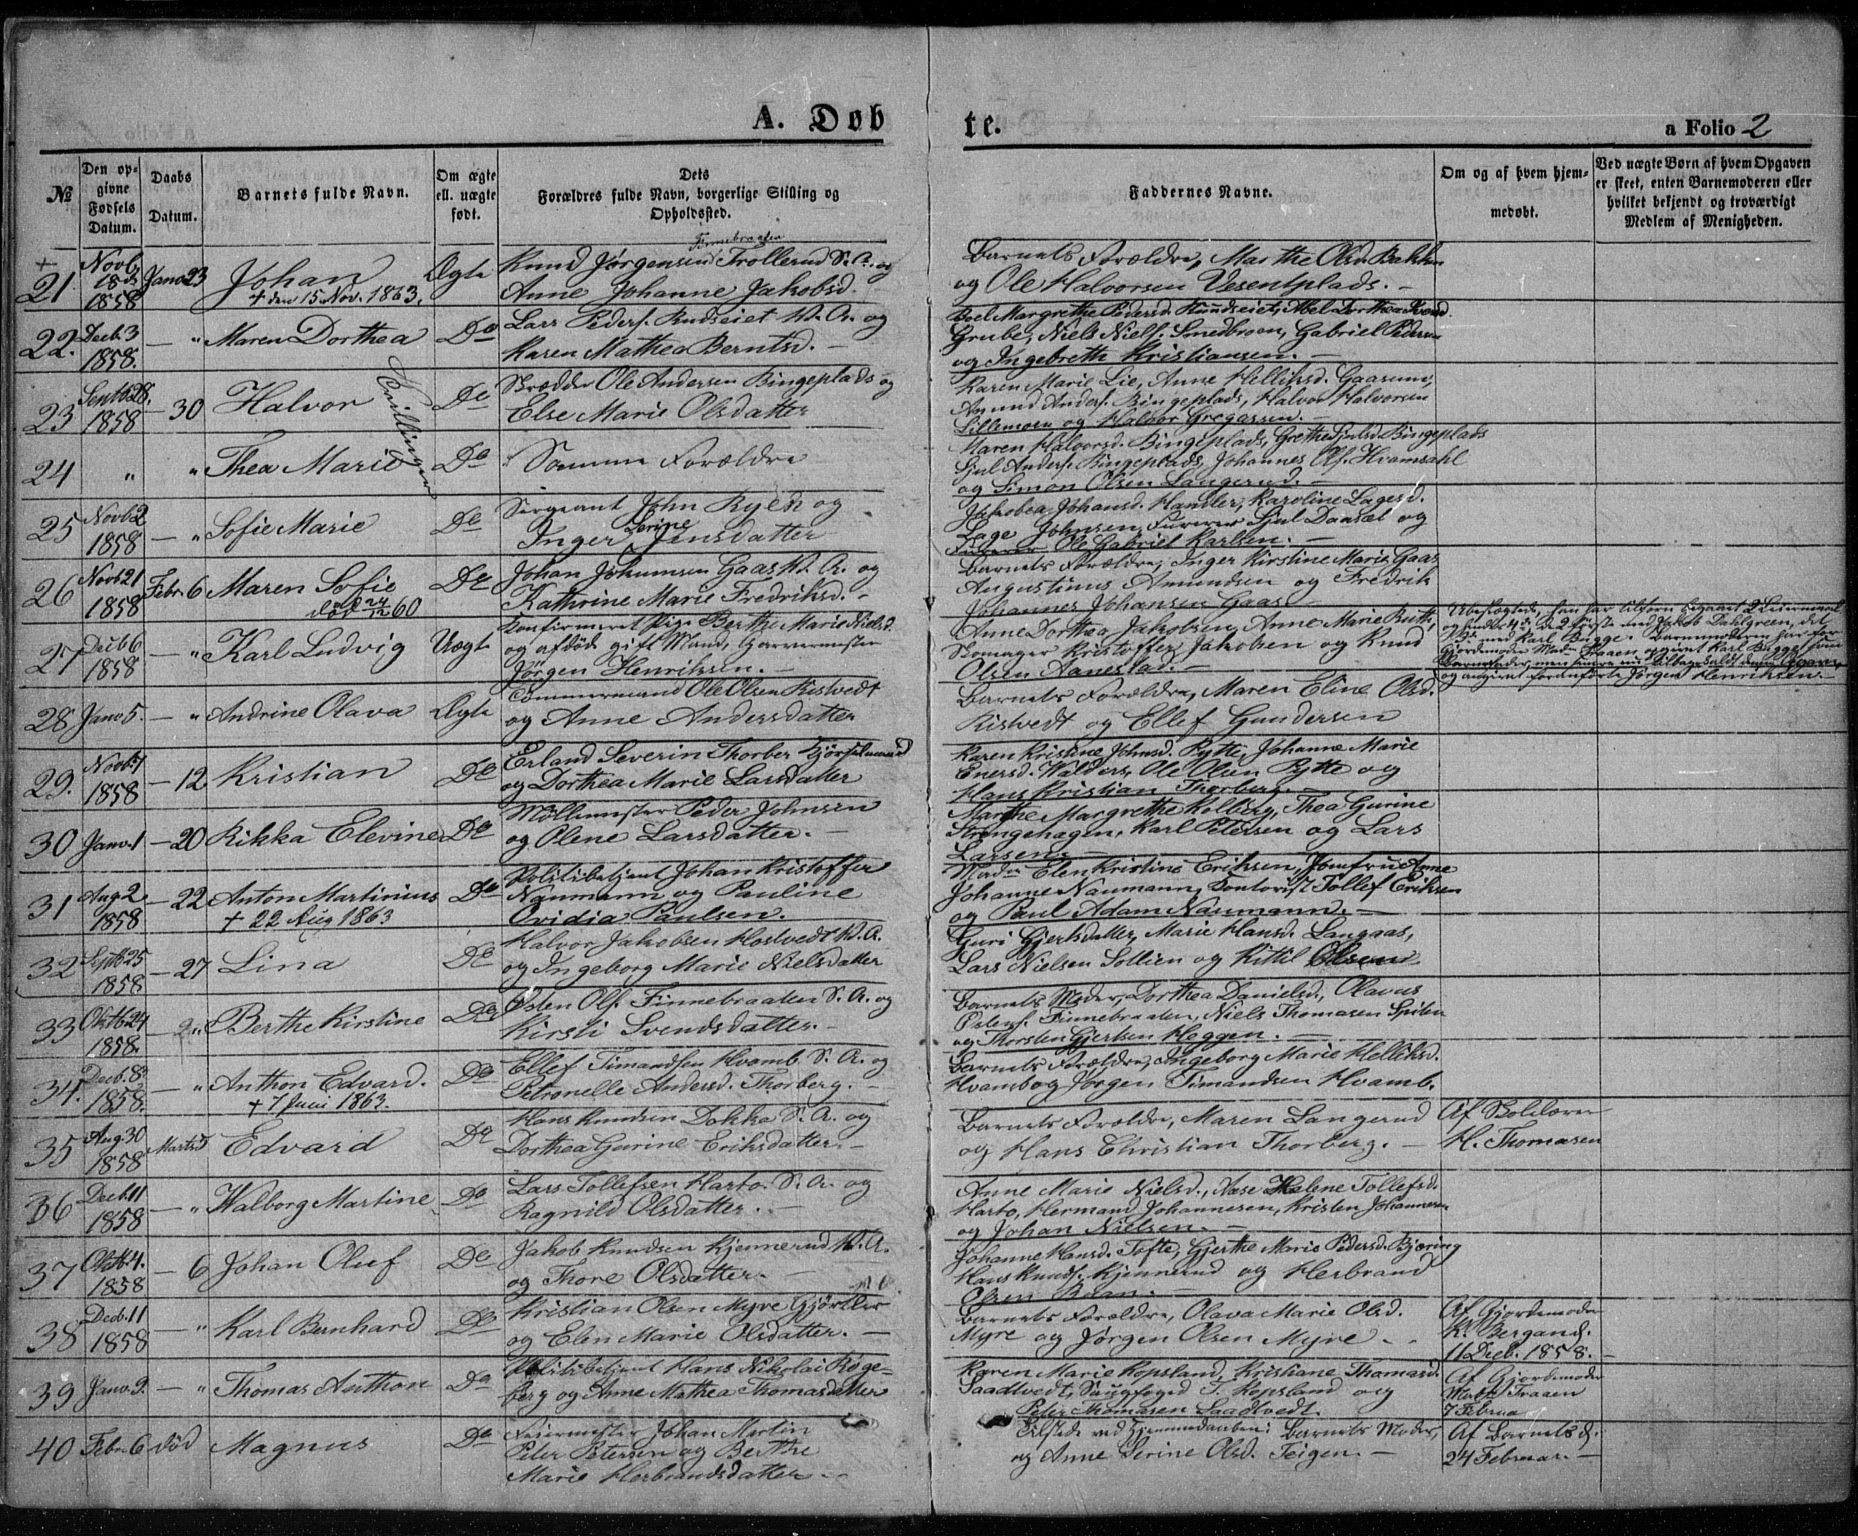 A. Døbte.
a Folio 2
№
Den opgivne Fødsels Datum.
Daabs Datum.
Barnets fulde Navn.
Om ægte ell. uægte født.
Dets Forældres fulde Navn, borgerlige Stilling og Opholdssted.
Faddernes Navne.
Om og af hvem hjemmedøbt.
Ved uægte Børn af hvem Opgaven er skeet, enten Barnemoderen eller hvilket bekjendt og troværdigt Medlem af Menigheden.
21. Novb. 18 1858 Janv 23 Johan Ægte
+ den 15 Nov. 1863.
Finnebraaten
Knud Jørgensen Trollerud S. A. og
Anne Johanne Jakobsd.
Barnets Forældre, Marthe Olsd. Bakken
og Ole Halvorsen Vesentplads.
22. Decb. 3 1858. — " Maren Dorthea Do
Lars Peders. Rudseiet V. A. og
Karen Mathea Berntsd.
Boel Margrethe Pedersd. Rundseiet, Abel Dorthea
Grube, Niels Niels. Smedbroen, Gabriel Pedersen
og Ingebreth Kristiansen.
23 Septb 28. 1858 — 30 Halvor De
Tvillinger
Skrædder Ole Andersen Bingeplads og
Else Marie Olsdatter
Karen Marie Lie, Anne Helliksd. Gaasum,
Amund Anders. Bingeplads, Halvor Halvorsen
Lillemoen og Halvor Gregersen.
24 " " Thea Marie De
Samme Forældre
Maren Halvorsd. Bingeplads, Grethe Sjulsd Bingeplads
Sjul Anders. Bingeplads, Johannes Ols. Hvamsahl
og Simon Olsen Langerud.
25 Novb 2 1858 — " Sofie Marie De
Sergeant John Ryen og
Inger Serine Jensdatter
Jakobea Johansd. Handler, Karoline Lagesd.
Lage Johnsen, Furerer Sjul Daasæt og
Furerer Ole Gabriel Karlsen.
26 Novb 21 1858 Febr. 6 Maren Sofie De
død 24/12 60
Johan Johannsen Gaas V. A. og
Kathrine Marie Fredriksd.
Barnets Forældre, Inger Kirstine Marie Gaas
Augustinus Amundsen og Fredrik
Johannes Johansen Gaas
27 Decb 6 1858 — " Karl Ludvig Uægte
Konfirmeret Pige Berthe Marie Nielsd.
og afdøde gift Mand, Garvermester
Jørgen Henriksen.
Anne Dorthea Jakobsen, Anne Marie Ruth,
Skomager Kristoffer Jakobsen og Knud
Olsen Aanestad.
og angivet foranførte Jørgen Henriksen.
28. Janv 5. — " Andrine Olava Ægte
Tømmermand Ole Olsen Kistvedt
og Anne Andersdatter
Barnets Forældre, Maren Eline Olsd.
Kistvedt og Ellef Gundersen
29. Novb 7 1858 — 12 Kristian De
Erland Severin Thorberg
og Dorthea Marie Larsdatter
Karen Kristine Johnsd. Pytte, Johanne Marie
Enersd. Walders, Ole Olsen Pytte og
Hans Kristian Thorberg.
30 Janv. 1 — 20 Rikka Elevine De
Møllemester Peder Johnsen
og Olene Larsdatter.
Marthe Margrethe Kolberg, Thea Gurine
Strengehagen, Karl Petersen og Lars
Larsen.
31 Aug 2 1858 — 22 Anton Martinius De
+ 22 Aug 1863
Politibetjent Johan Kristoffer
Naumann og Pauline
Ovidia Paulsen.
Madm Elen Kristine Eriksen, Jomfru Anne
Johanne Naumann, Kontorist Tollef Eriksen
og Paul Adam Naumann.
32 Septb 25 1858 — 27 Lina De
Halvor Jakobsen Hostvedt V. A.
og Ingeborg Marie Nielsdatter
Guri Gjertsdatter, Marie Hansd. Langaas,
Lars Nielsen Sollien og Kittil Olsen
33 Oktb 24 1858. — " Berthe Kirstine De
Østen Ols. Finnebraaten S. A. og
Kirsti Svendsdatter.
Barnets Moder, Dorthea Danielsd., Olavus
Østens. Finnebraaten, Niels Thomasen Spiten
og Thorsten Gjertsen Heggen.
34. Decb. 8 1858. — " Anthon Edvard. De
+ 7 Juni 1863.
Ellef Timandsen Hvamb S. A. og
Petronelle Andersd. Thorberg.
Barnets Forældre, Ingeborg Marie Helliksd.
Hvamb og Jørgen Timandsen Hvamb.
35 Aug. 30 1858 Marts 5 Edvard De
Hans Knudsen Dokka S. A. og
Dorthea Gurine Eriksdatter.
Barnets Forældre, Maren Langerud
og Hans Christian Thorberg.
Af Skolelærer
H. Thomasen
36 Decb 11 1858 — " Walborg Martine De
Lars Tollefsen Harto. S. A. og
Ragnild Olsdatter.
Anne Marie Nielsd., Aase Helene Tollefsd.
Harto, Hermand Johannesen, Kristen Johannesen
og Johan Nielsen.
37 Oktb 4. 1858 — 6 Johan Oluf De
Jakob Knudsen Kjennerud V. A.
og Thore Olsdatter.
Johanne Hansd. Tofte, Gjerthe Marie Pedersd. Bjøring
Hans Knuds. Kjennerud og Herbrand
Olsen Baan.
38 Decb. 11 1858 — " Karl Bernhard De
Kristian Olsen Myre Gjørtler
og Elen Marie Olsdatter.
Barnets Forældre, Olava Marie Olsd.
Myre og Jørgen Olsen Myre
Af Gjordemoder
K. Bergan
11 Decb. 1858.
39 Janv 9. — " Thomas Anthon De
Politibetjent Hans Nikolai Røgeberg og Anne Mathea Thomasdatter
Karen Marie Kopsland, Kristiane Thomasd.
Saadtvedt, Saugfoged T. Kopsland og
Peter Thomasen Saadtvedt.
Af Gjordemoder
Mad. Traaen
7 Februar
40 Febr. 6 død Magnus De
Feiermester Johan Martin
Peter Petersen og Berthe
Marie Herbrandsdatter.
Tilstede ved Hjemmedaaben: Barnets Moder,
og Anne Serine Olsd. Teigen.
Af Barnets
24 Februar.